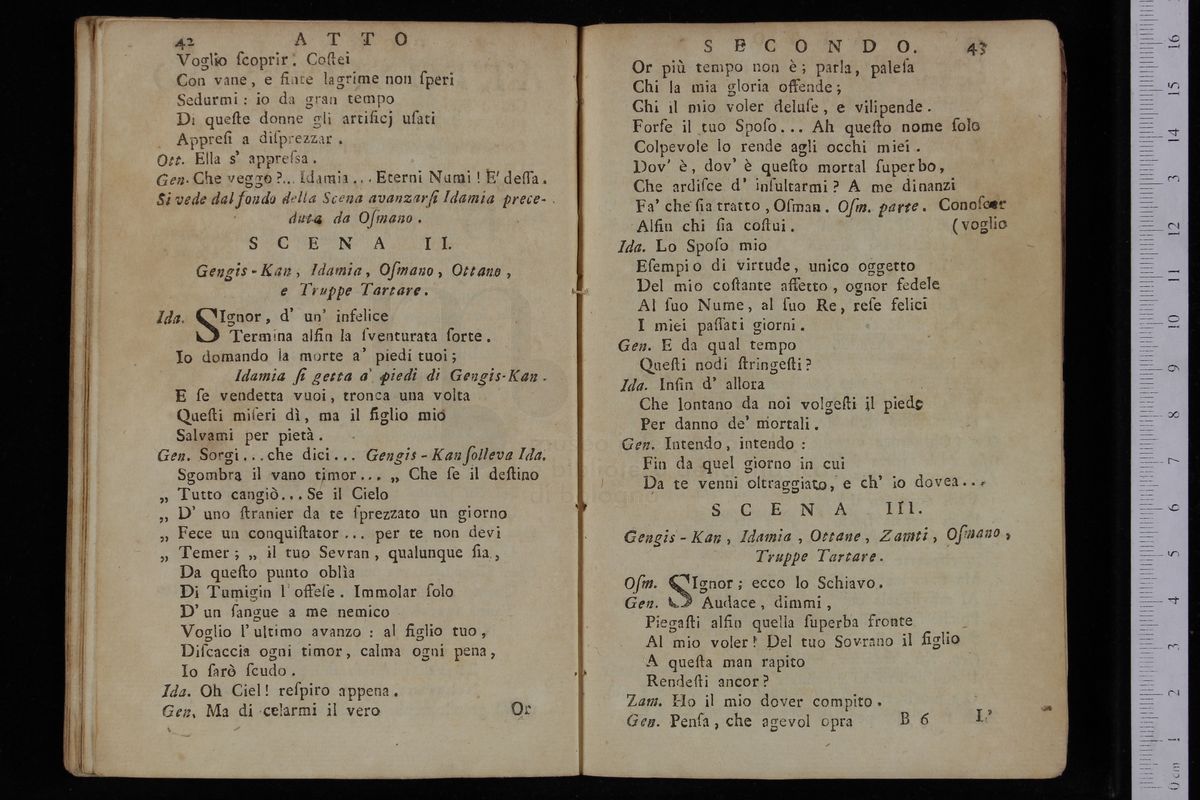 42 ATTO
Voglio ſcoprir. Coſtei
Con vane, e finte lagrime non ſperi
Sedurmi: io da gran tempo
Di queſte donne gli artificj uſati
Appreſi a diſprezzar.
Ott. Ella s' appreſsa.
Gen. Che veggo?.. Idamia... Eterni Numi! E' deſſa.
Si vede dal fondo della Scena avanzarſi Idamia prece-
duta da Oſmano.
SCENA II.
Gengis-Kan, Idamia, Oſmano, Ottano,
e Truppe Tartare.
Ida. SIgnor, d' un' infelice
Termina alfin la ſventurata ſorte.
Io domando la morte a' piedi tuoi;
Idamia ſi getta a' piedi di Gengis-Kan.
E ſe vendetta vuoi, tronca una volta
Queſti miſeri dì, ma il figlio mio
Salvami per pietà.
Gen. Sorgi...che dici... Gengis-Kan ſolleva Ida.
Sgombra il vano timor... „ Che ſe il deſtino
„ Tutto cangiò...Se il Cielo
„ D' uno ſtranier da te ſprezzato un giorno
„ Fece un conquiſtator... per te non devi
„ Temer; „ il tuo Sevran, qualunque ſia,
Da queſto punto oblìa
Di Tumigin l' offeſe. Immolar ſolo
D' un ſangue a me nemico
Voglio l' ultimo avanzo: al figlio tuo,
Diſcaccia ogni timor, calma ogni pena,
Io ſarò ſcudo.
Ida. Oh Ciel! reſpiro appena.
Gen. Ma di celarmi il vero
Or
SECONDO. 43
Or più tempo non è; parla, paleſa
Chi la mia gloria offende;
Chi il mio voler deluſe, e vilipende.
Forſe il tuo Spoſo... Ah queſto nome ſolo
Colpevole lo rende agli occhi miei.
Dov' è, dov' è queſto mortal ſuperbo,
Che ardiſce d' inſultarmi? A me dinanzi
Fa' che ſia tratto, Oſman. Oſm. parte. Conoſcer
Alfin chi ſia coſtui. (voglio
Ida. Lo Spoſo mio
Eſempio di virtude, unico oggetto
Del mio coſtante affetto, ognor fedele
Al ſuo Nume, al ſuo Re, reſe felici
I miei paſſati giorni.
Gen. E da qual tempo
Queſti nodi ſtringeſti?
Ida. Inſin d' allora
Che lontano da noi volgeſti il piede
Per danno de' mortali.
Gen. Intendo, intendo:
Fin da quel giorno in cui
Da te venni oltraggiato, e ch' io dovea...
SCENA III.
Gengis-Kan, Idamia, Ottane, Zamti, Oſmano,
Truppe Tartare.
Oſm. SIgnor; ecco lo Schiavo.
Gen. Audace, dimmi,
Piegaſti alfin quella ſuperba fronte
Al mio voler? Del tuo Sovrano il figlio
A queſta man rapito
Rendeſti ancor?
Zam. Ho il mio dover compito.
Gen. Penſa, che agevol opra
B 6 L'